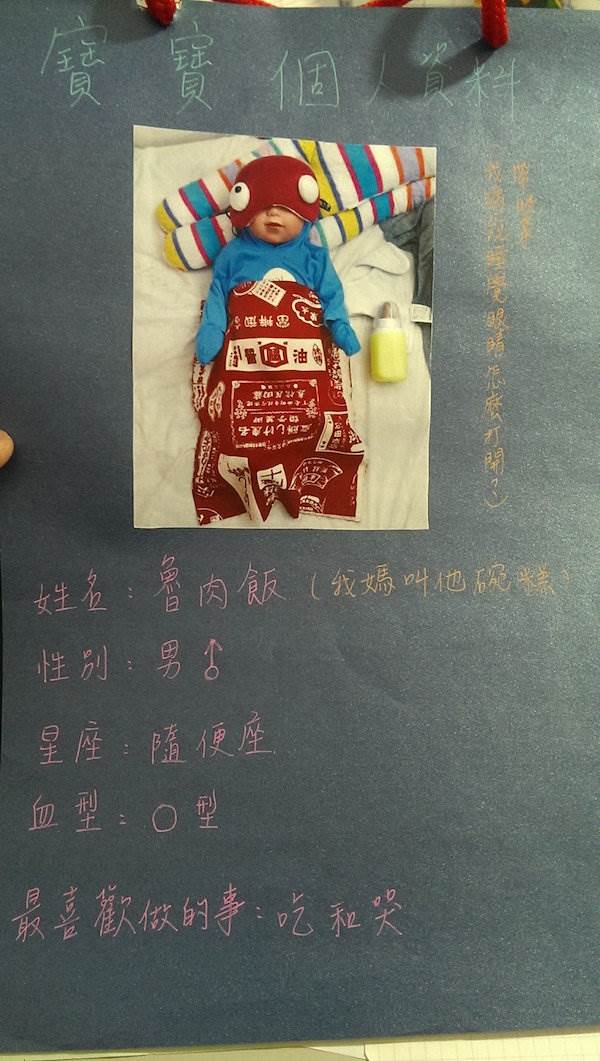 寶寶個人資料
我媽說睡覺眼睛怎麼打開？）
姓名：魯肉飯（我媽叫他碗糕）
性別：男♂
星座：隨便座
血型：O型
最喜歡做的事：吃和哭